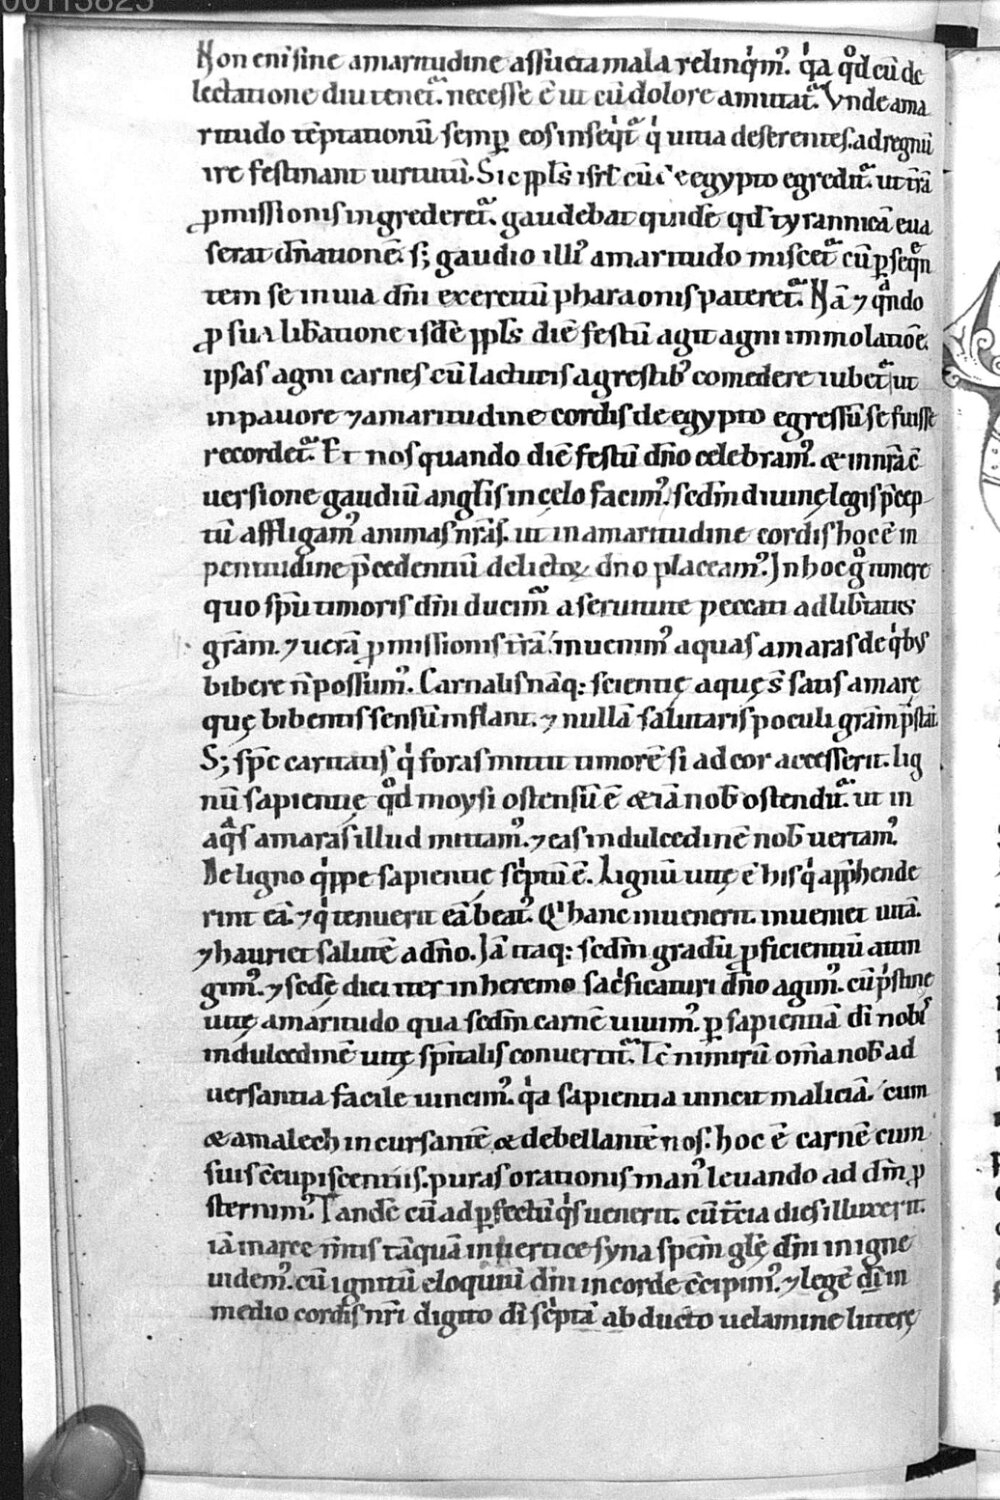 00113823
Non eni sine amaritudine assueta mala relinqͥmꝰ. qͥa qͦd cū de
lectatione diu tenetᷣ. necesse ē ut cū dolore amittatᷣ. Vnde ama
ritudo tēptationū semꝑ eos inseqͥtᷣ qͥ uitia deserentes. ad regnū
ire festinant uirtutū. Sic ppl̄s isrl̄ cū de egypto egreditᷣ. ut trā
ꝓmissionis ingrederetᷣ. gaudebat quidē qd̄ tyrannicā eua
serat dn̄ationē. s; gaudio illiꝰ amaritudo miscetᷣ cū ꝑseqn̄
tem se in uia dn̄i exercitū pharaonis pateretᷣ. Nā ⁊ qᷓndo
ꝓ sua lib̄atione isdē ppl̄s diē festū agit agni immolatiōe.
ipsas agni carnes cū lactucis agrestibꝰ comedere iubetᷣ ut
in pauore ⁊ amaritudine cordis de egypto egressū se fuisse
recordetᷣ. Et nos quando diē festū dn̄o celebramꝰ. & in nr̄a cō
uersione gaudiū angl̄is in cęlo facimꝰ. sedm̄ diuinę legis p̄cep
tū affligamꝰ animas nr̄as. ut in amaritudine cordis hoc ē in
penitudine p̄cedentiū delictoꝝ dn̄o placeamꝰ. In hoc gͦ itinere
quo sp̄u timoris dn̄i ducimᷣ a seruitute peccati ad lib̄tatis
grām. ⁊ uerā ꝓmissionis trā. inuenimꝰ aquas amaras de qͥbꝰ
bibere n̄ possumꝰ. Carnalis nāq: scientię aquę s̄ satis amarę
quę bibentis sensū inflant. ⁊ nullā salutaris poculi grām p̄stāt.
S; sp̄c caritatis qͥ foras mittit timorē si ad cor accesserit. lig
nū sapientię qͦd moysi ostensū ē & iā nob̄ ostenditᷣ. ut in
aqᷓs amaras illud mittamꝰ. ⁊ eas in dulcedinē nob̄ uertamꝰ.
De ligno qͥppe sapientię scͥptū ē. Lignū uitę ē his qͥ app̄hende
rint eā. ⁊ qͥ tenuerit eā beatꝰ. Qͥ hanc inuenerit. inueniet uitā.
⁊ hauriet salutē a dn̄o. Iā itaq: sedm̄ gradū ꝓficientiū attin
gimꝰ. ⁊ sedę diei iter in heremo sacͥficaturi dn̄o agimꝰ. cū pͥstinę
uitę amaritudo qua sedm̄ carnē uiuimꝰ. ꝑ sapientiā di nobis
in dulcedinē uitę sp̄italis conuertitᷣ. Tc̄ nimirū om̄a nob̄ ad
uersantia facile uincimꝰ. qͥa sapientia uincit maliciā. cum
& amalech incursantē & debellantē nos. hoc ē carnē cum
suis ↄcupiscentiis. puras orationis manꝰ leuando ad dm̄ ꝓ
sternimꝰ. Tandē cū ad ꝑfectū qͥs uenerit. cū tcͥa dies illuxerit.
iā in arce m̄tis tāquā in uertice syna spēm glę dn̄i in igne
uidemꝰ. cū ignitū eloquiū dn̄i in corde ↄcipimꝰ. ⁊ legē dī in
medio cordis nr̄i digito dī scͥptā abducto uelamine litterę